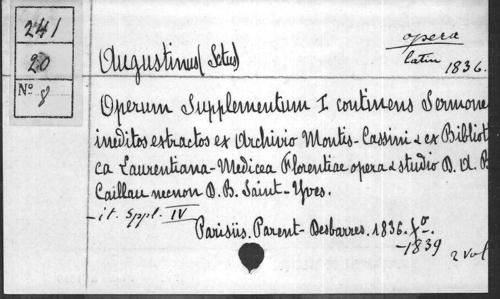 241
20
Nº 8
Augustinus (Sctus)
opera
latin 1836.
Operum Supplementum I continens Sermone
ineditos extractos ex Archivio Montis-Cassini & ex Bibliot
ca Laurentiana-Medicea Florentiae opera & studio D. A. B
Caillau necnon D. B. Saint-Yves.
- it. Sppt. IV
Parisiis. Parent-Desbarres. 1836. fº.
-1839
2 vol